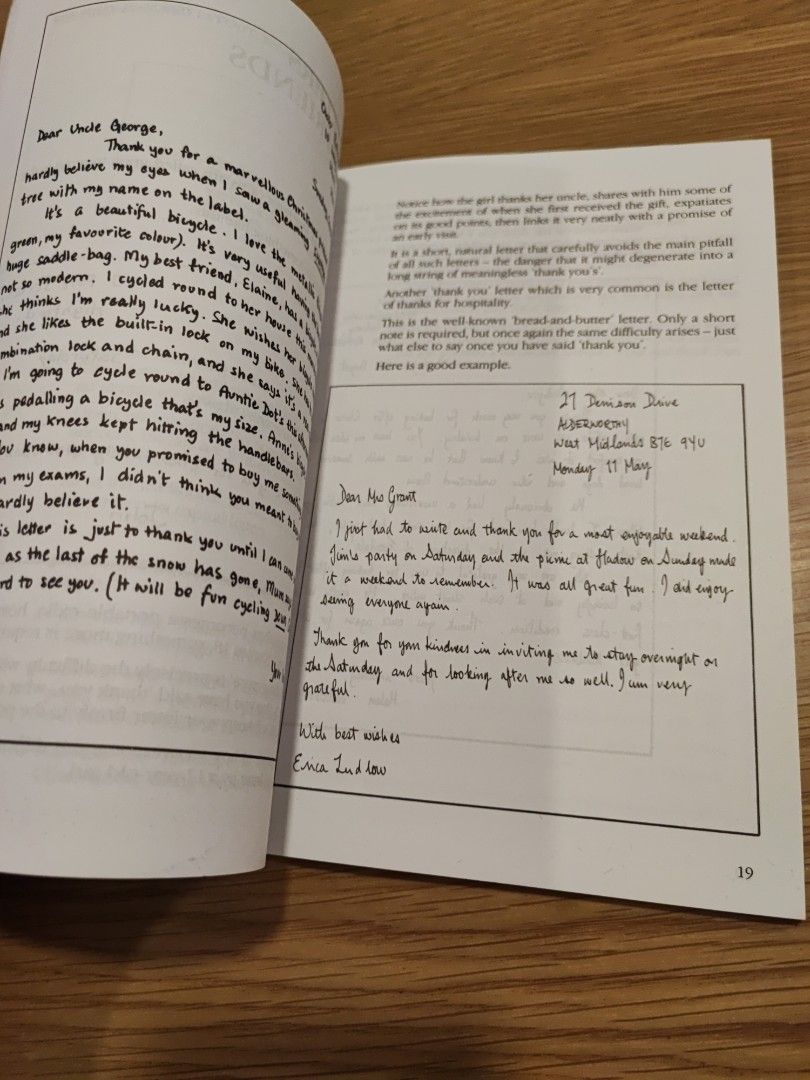 Dear Uncle George,
Thank you for a marvellous Christmas
hardly believe my eyes when I saw a gleaming
tree with my name on the label.
It's a beautiful bicycle. I love the metallic
green, my favourite colour). It's very useful having
huge saddle-bag. My best friend, Elaine, has a
not so modern. I cycled round to her house this
she thinks I'm really lucky. She wishes her
nd she likes the built-in lock on my bike. She
mbination lock and chain, and she says it's a
I'm going to cycle round to Auntie Dot's this
s pedalling a bicycle that's my size. Anne's
and my knees kept hitting the handlebars.
ou know, when you promised to buy me
n my exams, I didn't think you meant
ardly believe it.
is letter is just to thank you until I can
as the last of the snow has gone, Mum
rd to see you. (It will be fun cycling
You
Notice how the girl thanks her uncle, shares with him some of
the excitement of when she first received the gift, expatiates
on its good points, then links it very neatly with a promise of
an early visit.
It is a short, natural letter that carefully avoids the main pitfall
of all such letters – the danger that it might degenerate into a
long string of meaningless 'thank you's'.
Another 'thank you' letter which is very common is the letter
of thanks for hospitality.
This is the well-known 'bread-and-butter' letter. Only a short
note is required, but once again the same difficulty arises – just
what else to say once you have said 'thank you'.
Here is a good example.
27 Denison Drive
ALDERWORTHY
West Midlands B7E 9YU
Monday 11 May
Dear Mrs Grant
I just had to write and thank you for a most enjoyable weekend.
Jim's party on Saturday and the picnic at Hadow on Sunday made
it a weekend to remember. It was all great fun. I did enjoy
seeing everyone again.
Thank you for your kindness in inviting me to stay overnight on
the Saturday and for looking after me so well. I am very
grateful.
With best wishes
Erica Ludlow
19